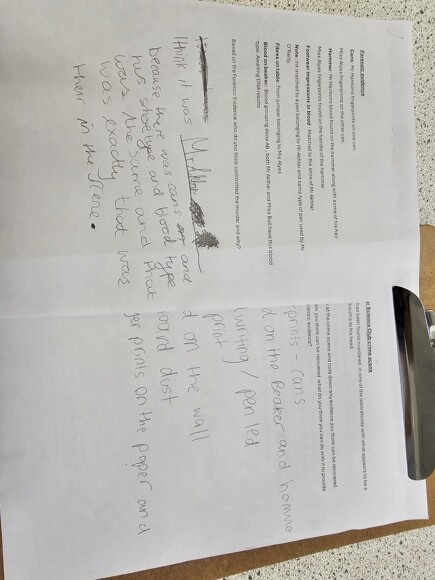 Forensic evidence
Cans: Mr Hansons fingerprints on one can.
Miss Alyas fingerprints on the other can.
Hammer: Mr Hansons blood found on the hammer along with some of his hair
Miss Alyas fingerprints found on the handle of the hammer
Footwear impressions in blood: Matched to the shoe of Mr Akhtar
Note: ink matched to a pen belonging to Mr Akhtar and same type of pen used by Mr
O'Reilly
Fibres on table: From jumper belonging to Ms Alyas
Blood on beaker: Blood grouping done AB, both Mr Akhtar and Miss Bull have this blood
type. Awaiting DNA results
Based on the Forensic Evidence who do you think committed the murder and why?
I think it was
because there was cans and
his shoe type and blood type
was the same and that
was exactly that was
their in the scene.
e Science Club crime scene
has been found murdered, in one of the laboratories with what appears to be a
trauma to his head.
at the crime scene and note down any evidence you think can be recovered
you think can be recovered what do you think you can do with it to provide
evidence?
rprints - cans
d on the Beaker and
writing / pen led
print
d on the wall
oard dust
er prints on the paper and